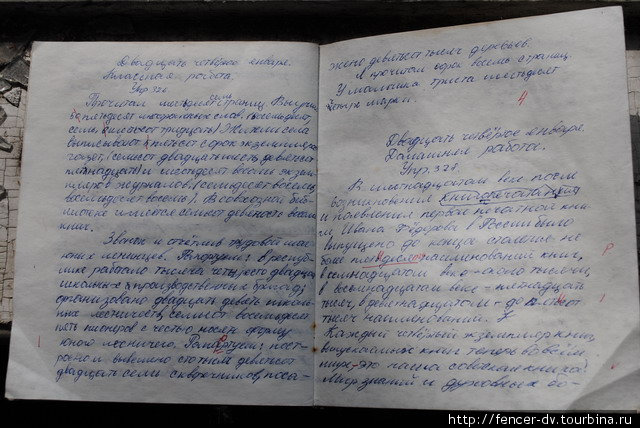 Двадцать четвёртое января.
Классная работа.
Упр. 326
Прочитал шестьдесят семь страниц. Выучил
пятьдесят иностранных слов.
семь, восемьсот тридцать). Жители села
выписывают пятьсот сорок экземпляров
газет, (семьсот двадцать шесть, девятьсот
пятнадцать) и шестьдесят восемь экзем-
пляров журналов, (семьдесят восемь,
восемьдесят восемь). В совхозной биб-
лиотеке имеется семьсот девяносто восемь
книг.
Звонок и отчётлив трудовой шаг
юных ленинцев. в респуб-
лике работало тысяча четыреста двадцать
школьных производственных бригад;
организовано двадцать девять школь-
ных лесничеств; семьсот восемьдесят
пять пионеров с честью носят форму
юного лесничего. пост-
роено и вывешено сто тысяч девятьсот
двадцать семь скворечников, поса-
жено девятьсот тысяч деревьев.
Я прочитал сорок восемь страниц.
У мальчика триста шестьдесят
четыре марки.
4
Двадцать четвёртое января.
Домашняя работа.
Упр. 327.
В шестнадцатом веке после
возникновения книгопечатания
и появления первой печатной кни-
ги Ивана Фёдорова в России было
выпущено до конца столетия не
более наименований книг,
в семнадцатом веке - около тысячи,
в восемнадцатом веке - пятнадцать
тысяч, в девятнадцатом - до
тысяч наименований.
Каждый четвёртый экземпляр книг,
выпускаемых книг теперь во всём
мире, - это наша советская книга.
Мир знаний и духовных бо-
http://fencer-dv.tourbina.ru/